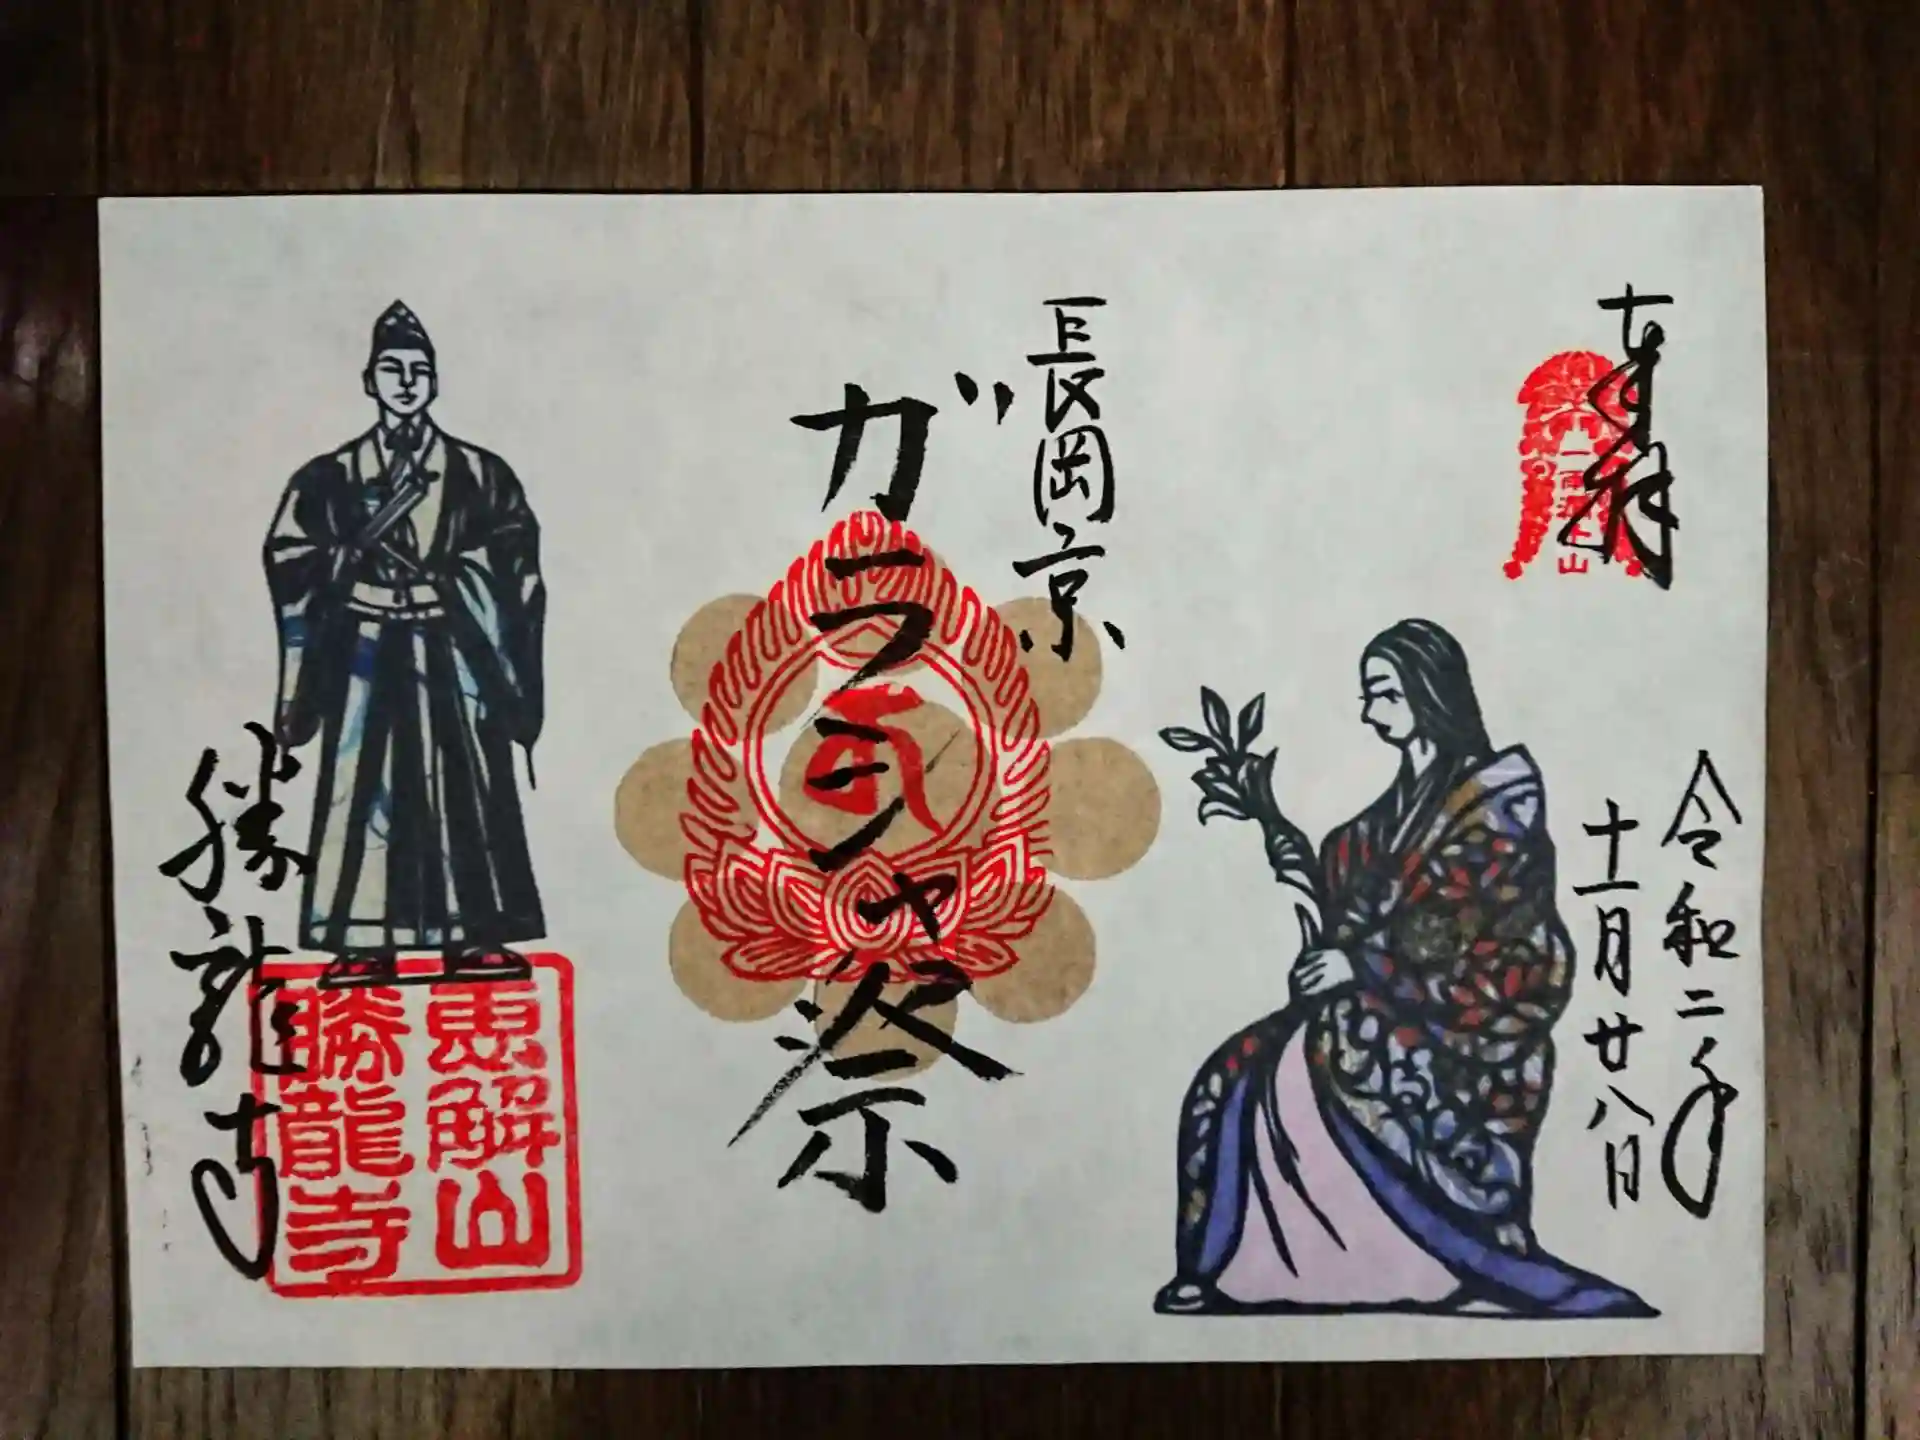 奉拝
令和二年
十一月廿八日
長岡京
ガラシャ祭
勝龍寺
恵解山
勝龍寺